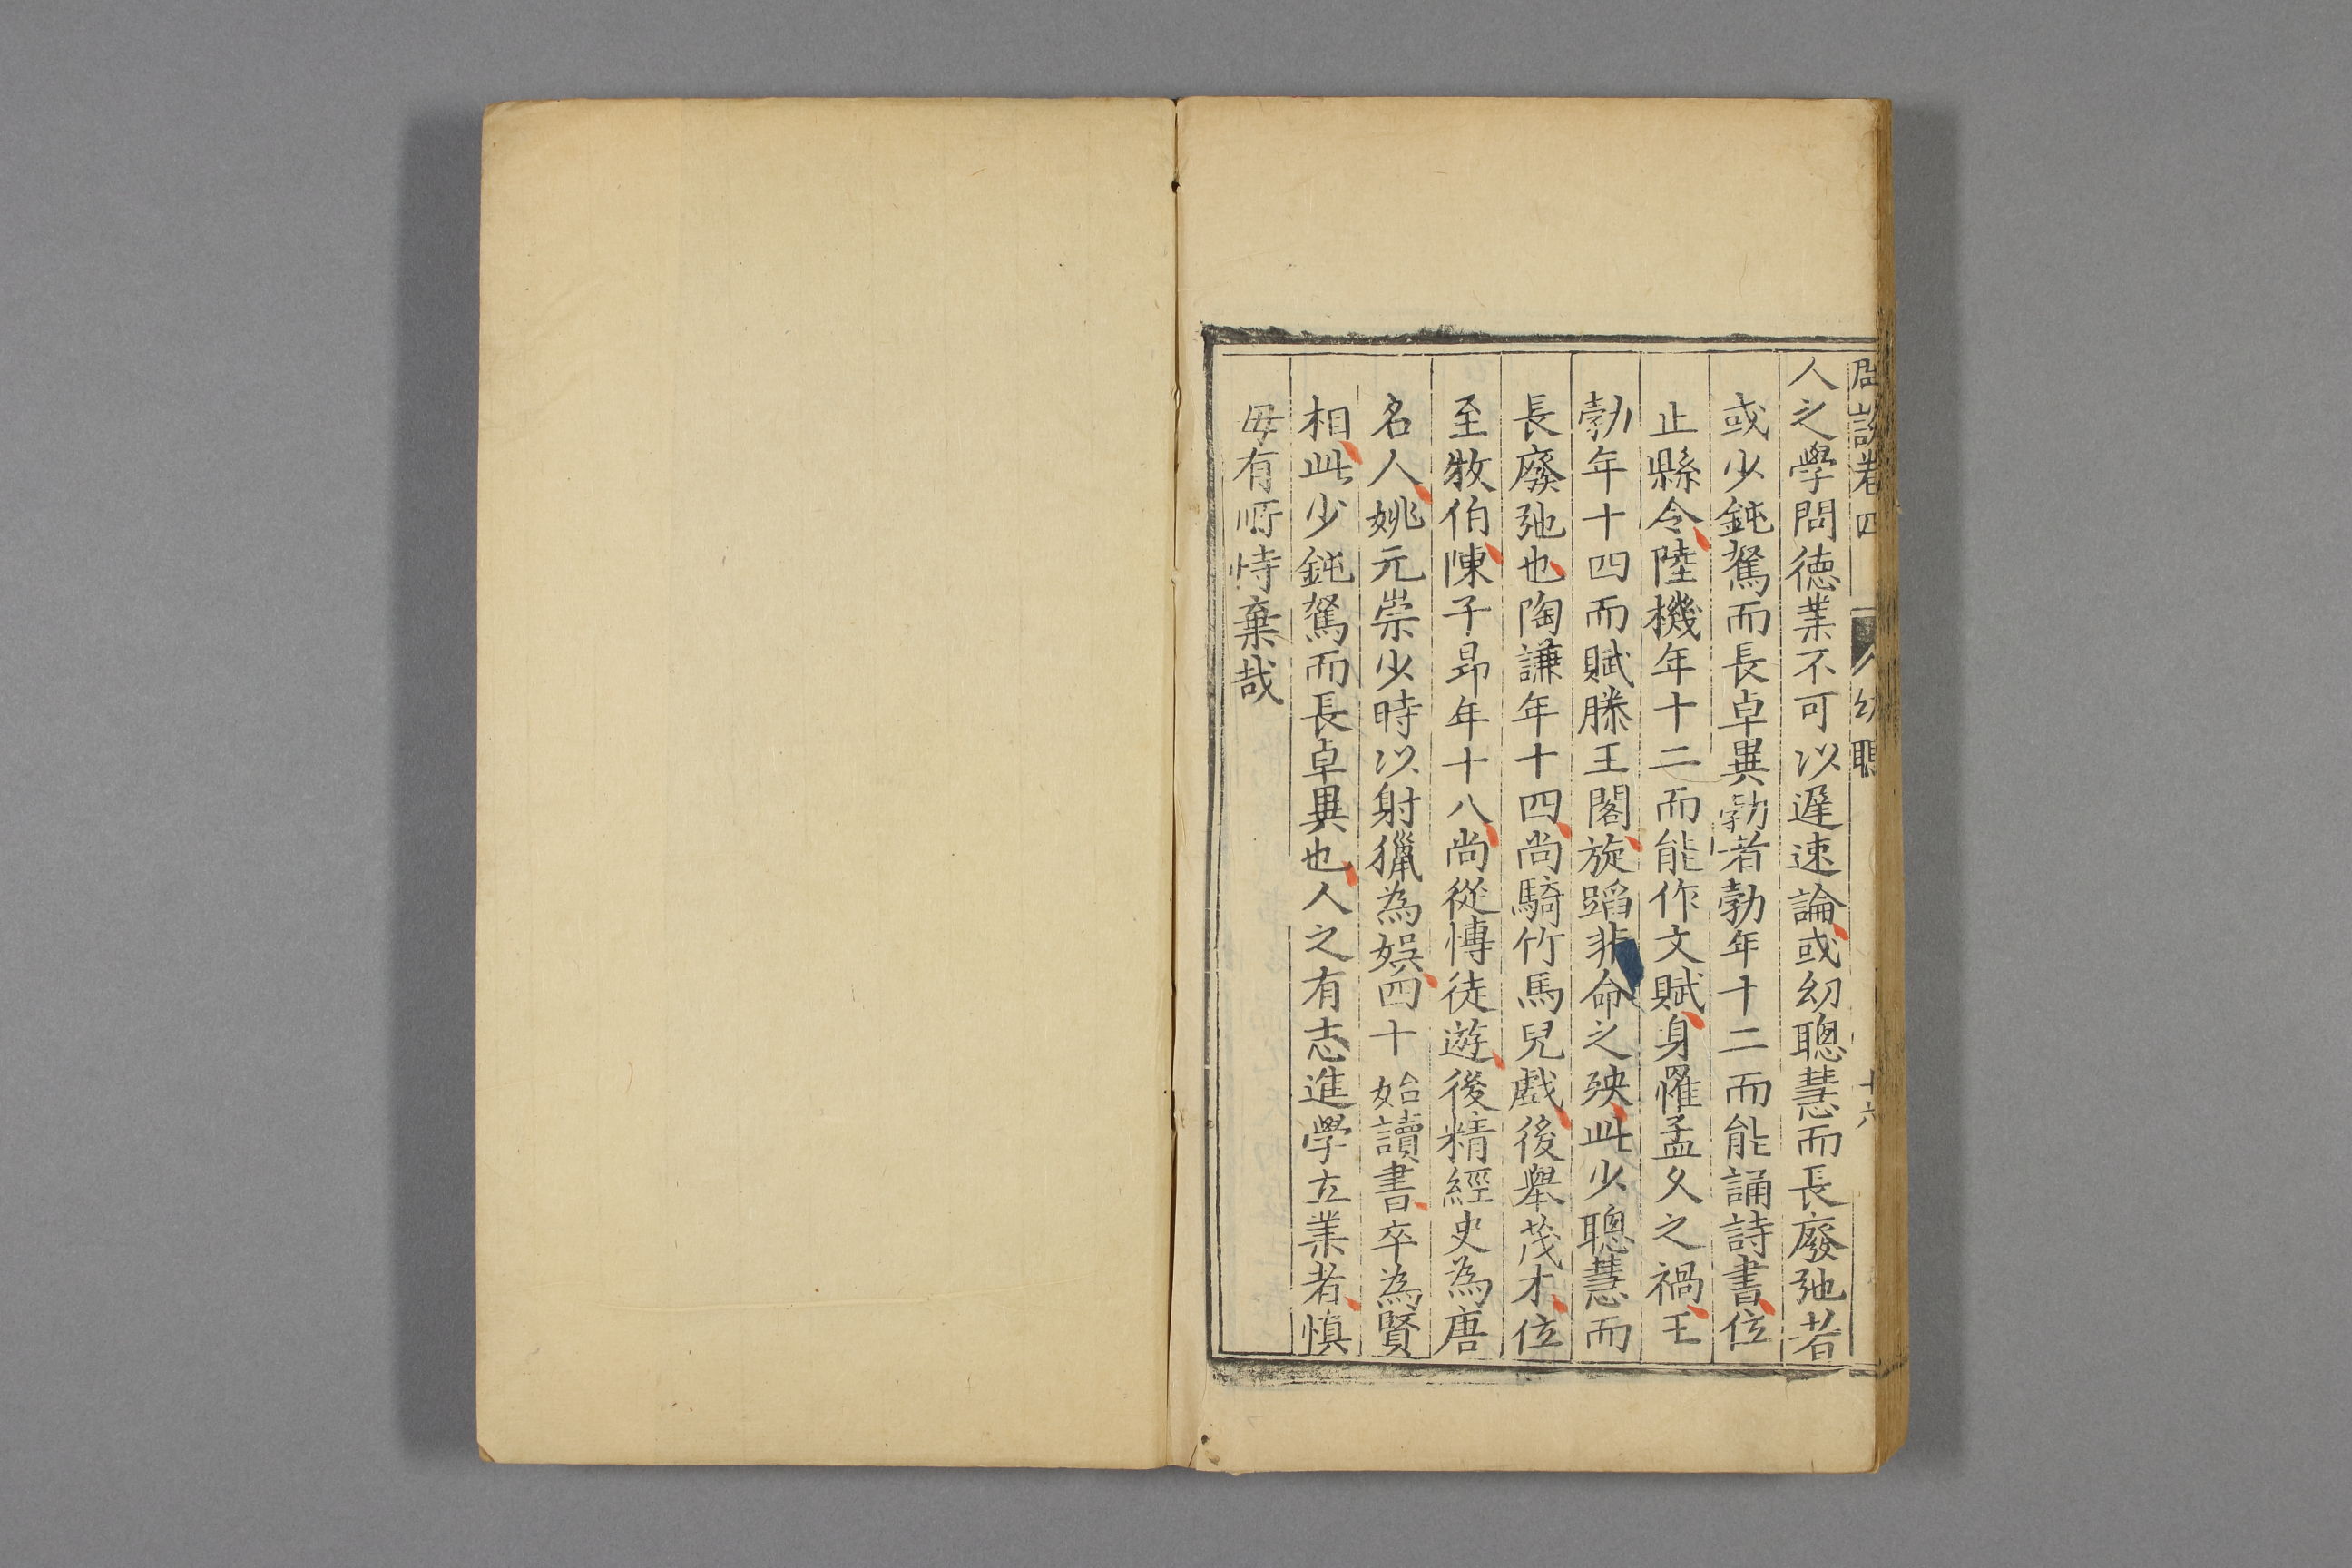 卷四 幼聰 十六
人之學問德業不可以遲速論或幼聰慧而長廢弛者
或少鈍駑而長卓異勃者勃年十二而能誦詩書位
止縣令陸機年十二而能作文賦身罹孟久之禍王
勃年十四而賦滕王閣旋蹈非命之殃此少聰慧而
長廢弛也陶謙年十四尚騎竹馬兒戲後舉茂才位
至牧伯陳子昂年十八尚從慱徒遊後精經史為唐
名人姚元崇少時以射獵為娛四十始讀書卒為賢
相此少鈍駑而長卓異也人之有志進學立業者慎
毋有所恃棄哉